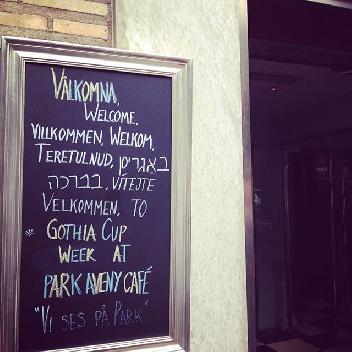 VÄLKOMNA,
WELCOME,
VILLKOMMEN, WELKOM,
TERETULNUD, באגרין
בברכה, VITEJTE
VELKOMMEN, TO
GOTHIA CUP
WEEK AT
PARK AVENY CAFÉ
"VI SES PÅ PARK"